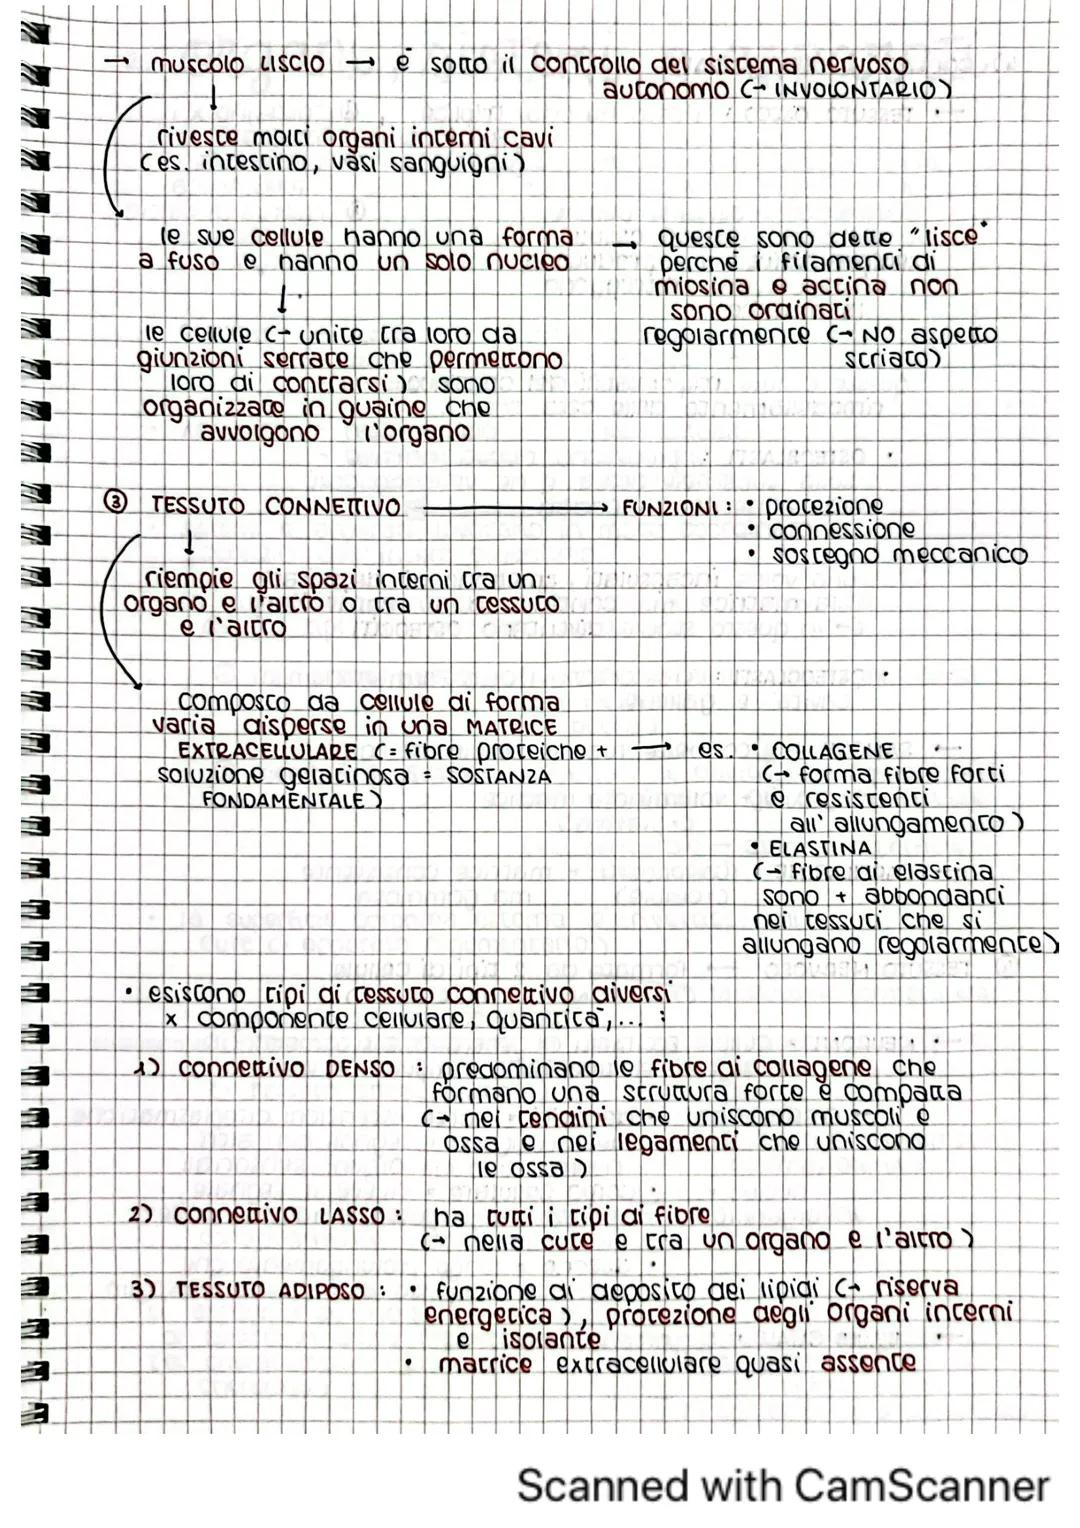 → muscolo LISCIO → è sotto il controllo del sistema nervoso
autonomo (→ INVOLONTARIO)
riveste molti organi interni cavi
(es. intestino, vasi sanguigni)
le sue cellule hanno una forma
a fuso e hanno un solo nucleo
→ queste sono dette "lisce"
perché i filamenti di
miosina e actina non
sono ordinati
regolarmente (→ NO aspetto
striato)
le cellule (→ unite tra loro da
giunzioni serrate che permettono
loro di contrarsi) sono
organizzate in guaine che
avvolgono l'organo
③ TESSUTO CONNETTIVO → FUNZIONI: • protezione
• connessione
• sostegno meccanico
riempie gli spazi interni tra un
organo e l'altro o tra un tessuto
e l'altro
composto da cellule di forma
varia disperse in una MATRICE
EXTRACELLULARE (= fibre proteiche +
soluzione gelatinosa = SOSTANZA
FONDAMENTALE)
→ es. • COLLAGENE
(→ forma fibre forti
e resistenti
all'allungamento)
• ELASTINA
(→ fibre di elastina
sono + abbondanti
nei tessuti che si
allungano regolarmente)
• esistono tipi di tessuto connettivo diversi
x componente cellulare, quantità,... :
1) connettivo DENSO : predominano le fibre di collagene che
formano una struttura forte e compatta
(→ nei tendini che uniscono muscoli e
ossa e nei legamenti che uniscono
le ossa)
2) connettivo LASSO : ha tutti i tipi di fibre
(→ nella cute e tra un organo e l'altro)
3) TESSUTO ADIPOSO : • funzione di deposito dei lipidi (→ riserva
energetica), protezione degli organi interni
e isolante
• matrice extracellulare quasi assente
Scanned with CamScanner